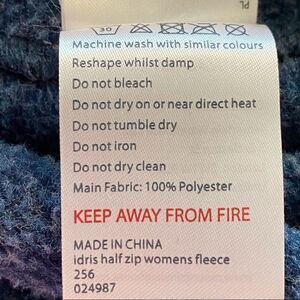 PL
30
Machine wash with similar colours
Reshape whilst damp
Do not bleach
Do not dry on or near direct heat
Do not tumble dry
Do not iron
Do not dry clean
Main Fabric: 100% Polyester
KEEP AWAY FROM FIRE
MADE IN CHINA
idris half zip womens fleece
256
024987